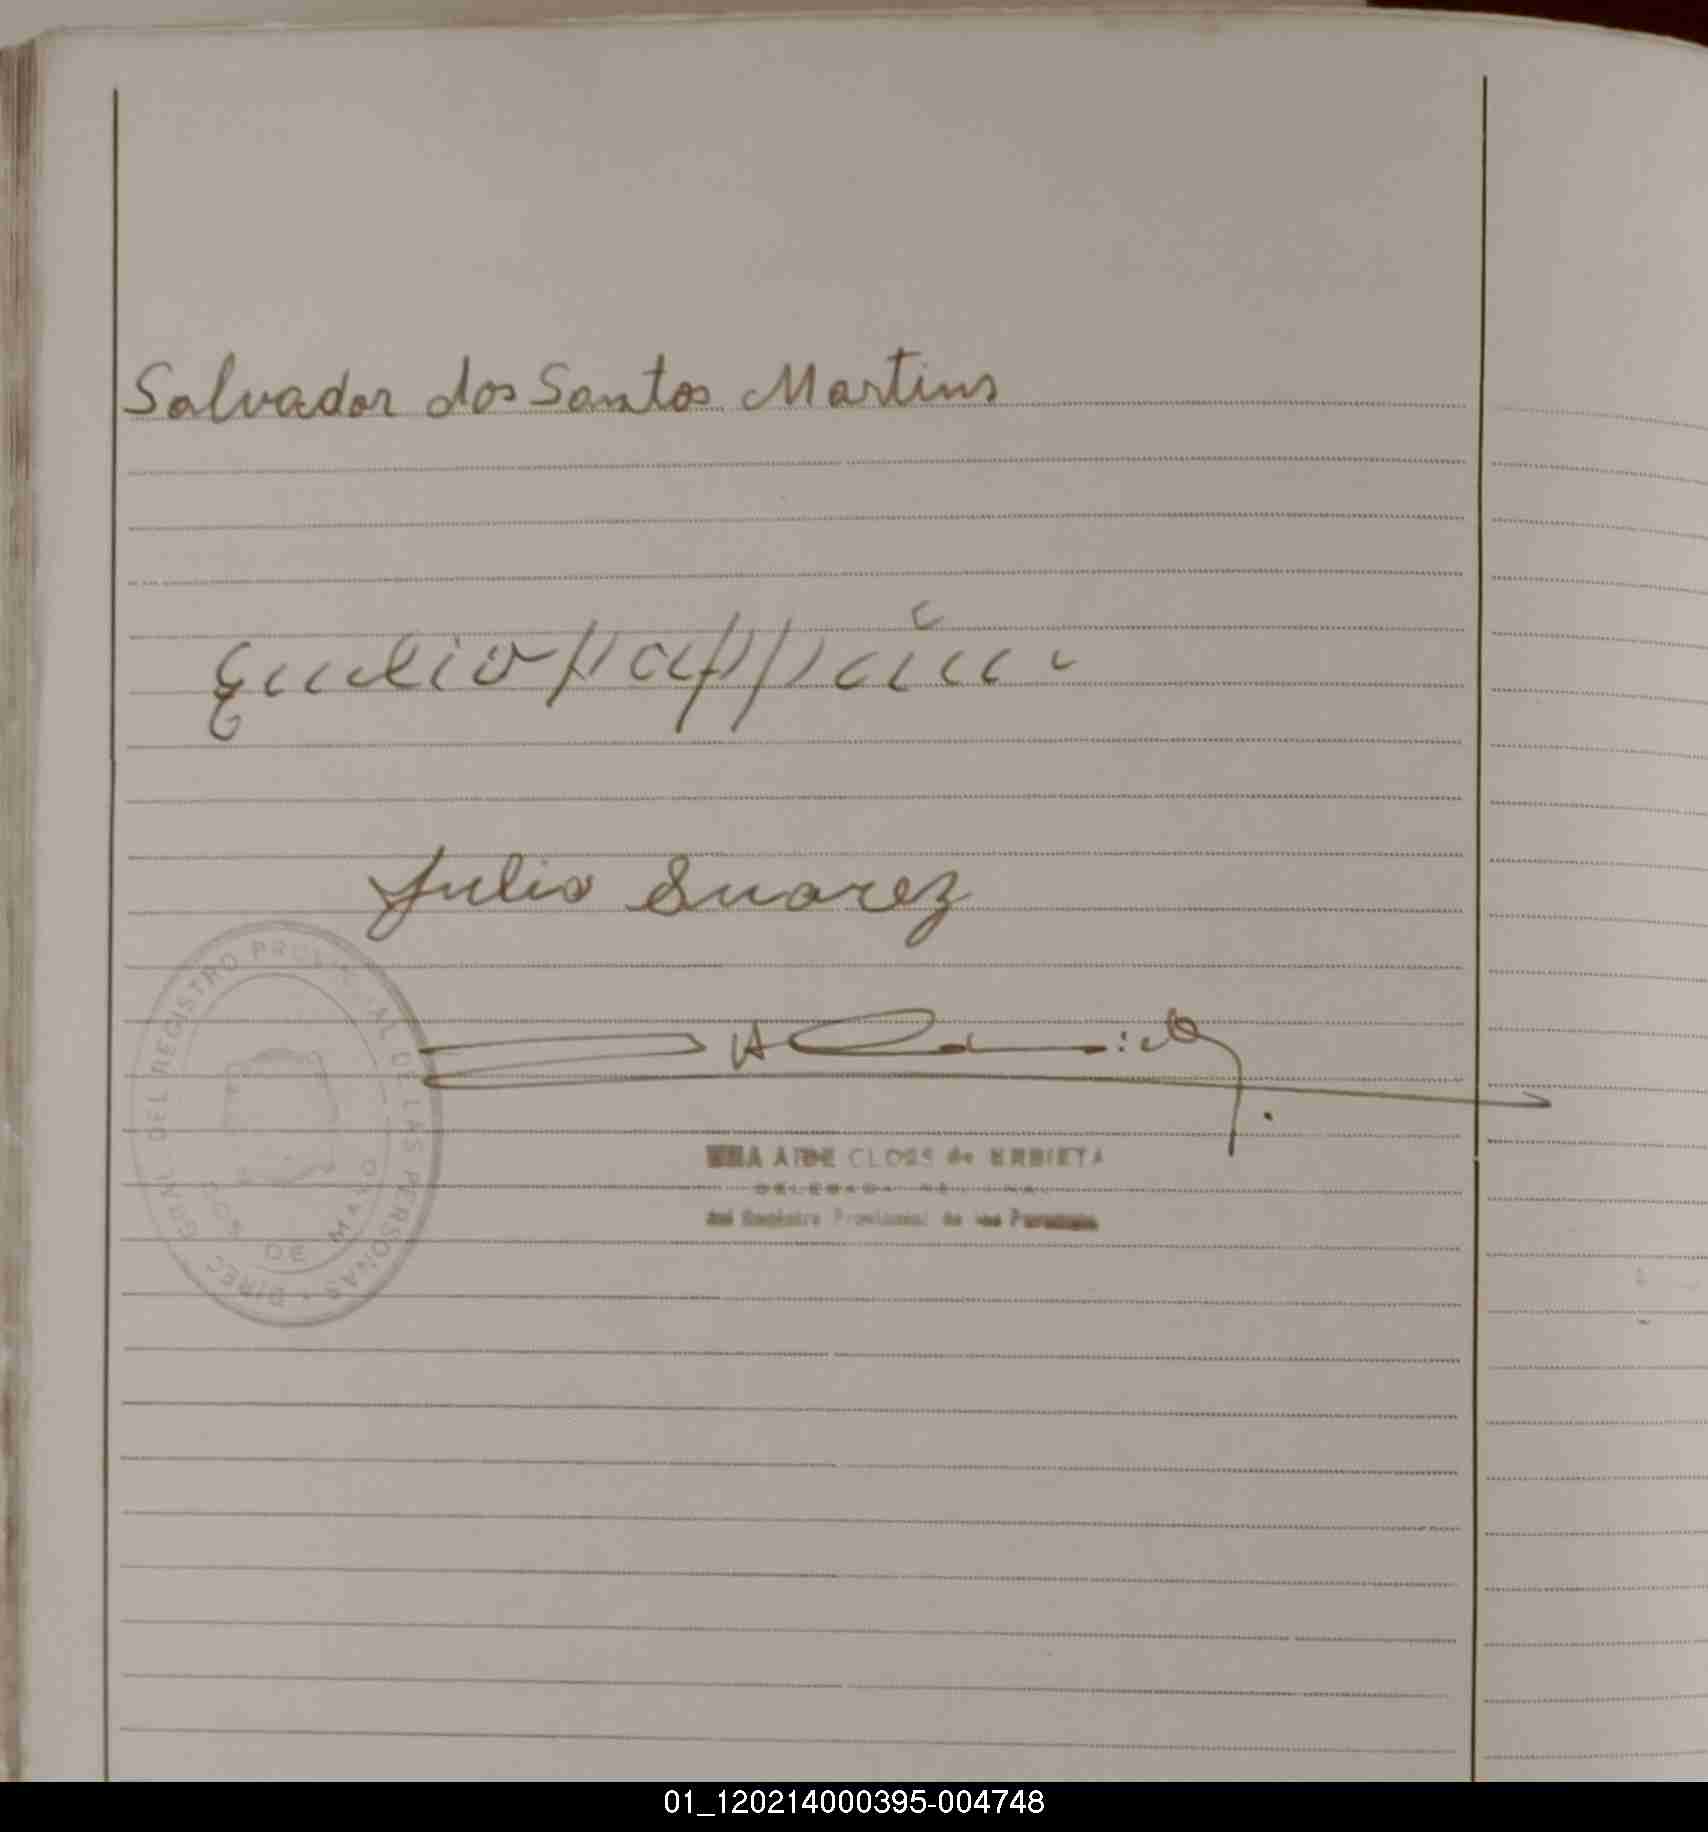 Salvador dos Santos Martins
Julio Suarez
DIREC. GRAL. DEL REGISTRO PROVINCIAL DE LAS PERSONAS
DOS DE MAYO
AIDE CLOSS de URBIETA
DELEGADA
del Registro Provincial de las Personas
01_120214000395-004748